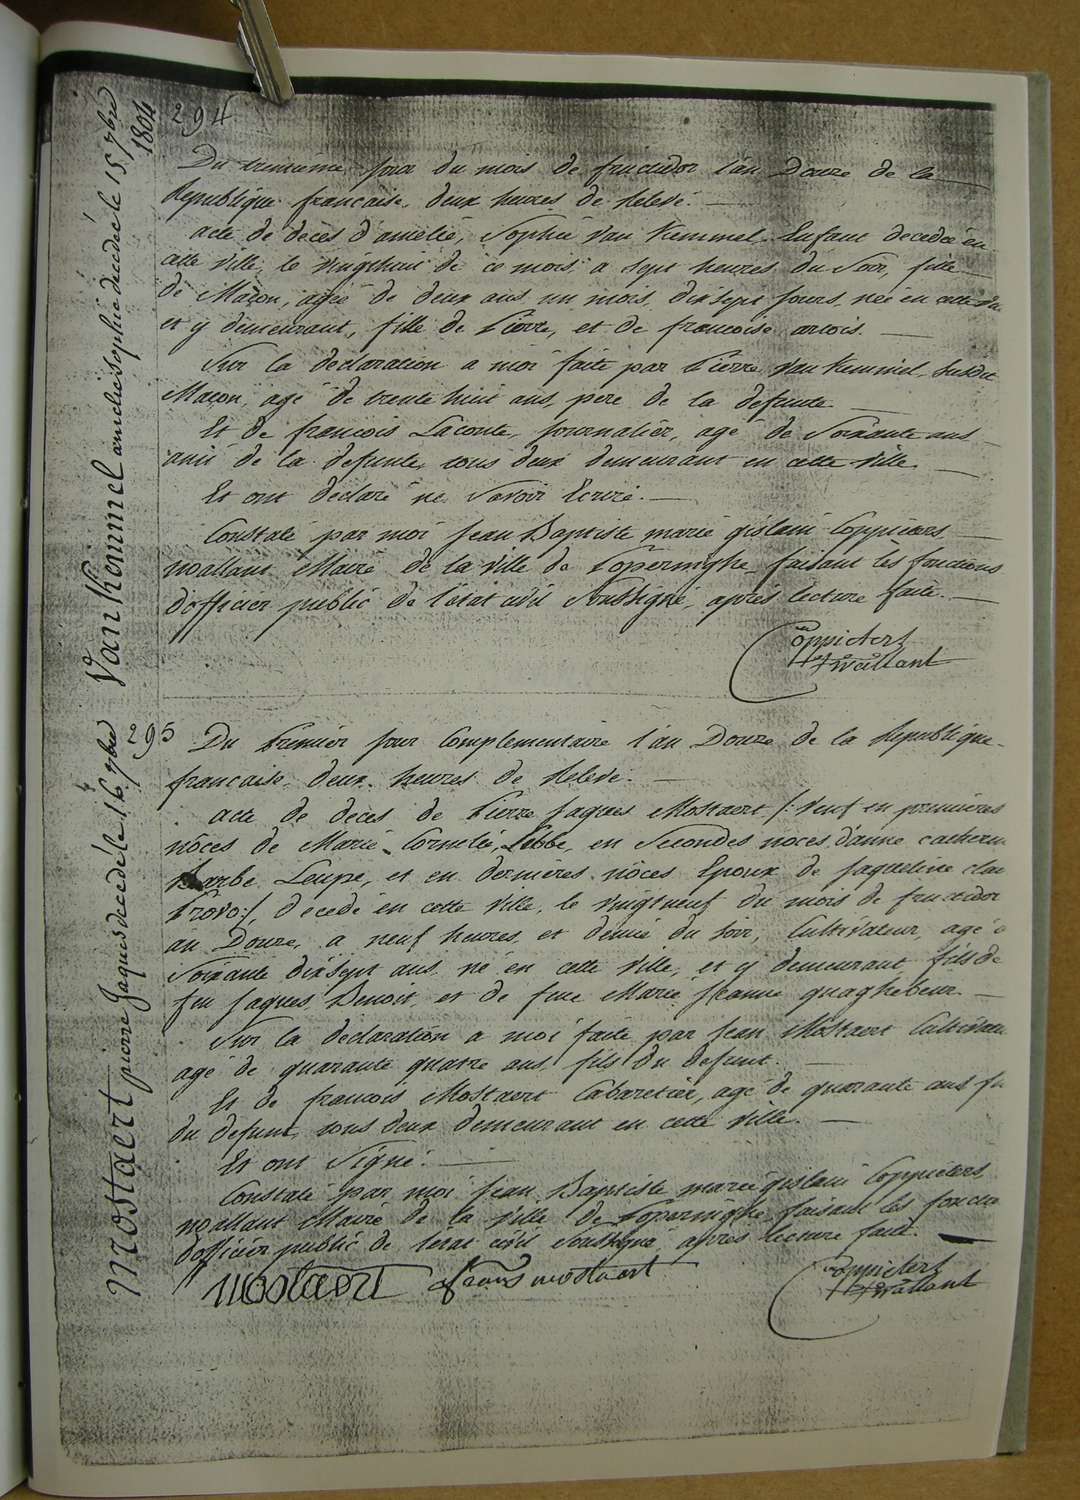 Van Kemmel amelie sophie decedée le 15 7bre
1804
294
Du trentième jour du mois de fructidor l'an Douze de la
Republique française, deux heures de Relevé. —
acte de décès d'amelie, Sophie Van Kemmel, Enfant decedée en
cette ville, le vingthuit de ce mois, a sept heures du Soir, fille
de Maçon, agée de deux ans, un mois, dixsept jours, née en cette ville
et y demeurant, fille de Pierre, et de françoise artois. —
Sur la declaration a moi faite par Pierre Van Kemmel, Susdit
Maçon, agé de trente huit ans, pere de la defunte —
Et de françois Laconte, journalier, agé de Soixante ans —
ami de la defunte, tous deux demeurant en cette ville. —
Et ont declaré ne Savoir Ecrire. —
Constaté par moi Jean Baptiste marie gislain Coppieters —
wallant Maire de la ville de Poperinghe, faisant les fonctions
d'officier public de l'état civil Soussigné, après lecture faite. —
Coppieters
t'Wallant
mostaert pierre Jaques decedé le 16 7bre
295
Du Premier jour Complementaire l'an Douze de la Republique
française, deux heures de Relevé. —
acte de deces de Pierre Jaques Mostaert /: Veuf en premieres
nôces de Marie Cornelie Lebbe, en Secondes noces d'anne catherin
Barbe Leupe, et en dernières nôces Epoux de Jaqueline clai
Provo :/, decedé en cette ville, le vingtneuf du mois de fructidor
an Douze, a neuf heures et demie du soir, Cultivateur, agé d
Soixante dixsept ans, né en cette ville, et y demeurant, fils de
feu Jaques Benoit, et de feue Marie Jeanne quaghebeur. —
Sur la declaration a moi faite par Jean Mostaert Cultivateu
agé de quarante quatre ans, fils du defunt. —
Et de francois Mostaert Cabaretier, agé de quarante ans fi
du defunt, tous deux demeurant en cette ville. —
Et ont Signé. —
Constaté par moi Jean Baptiste marie gislain Coppieters
wallant Maire de la ville de Poperinghe, faisant les fonctio
d'officier public de l'état civil Soussigné, après lecture faite. —
mostaert frans mostaert
Coppieters
t'Wallant